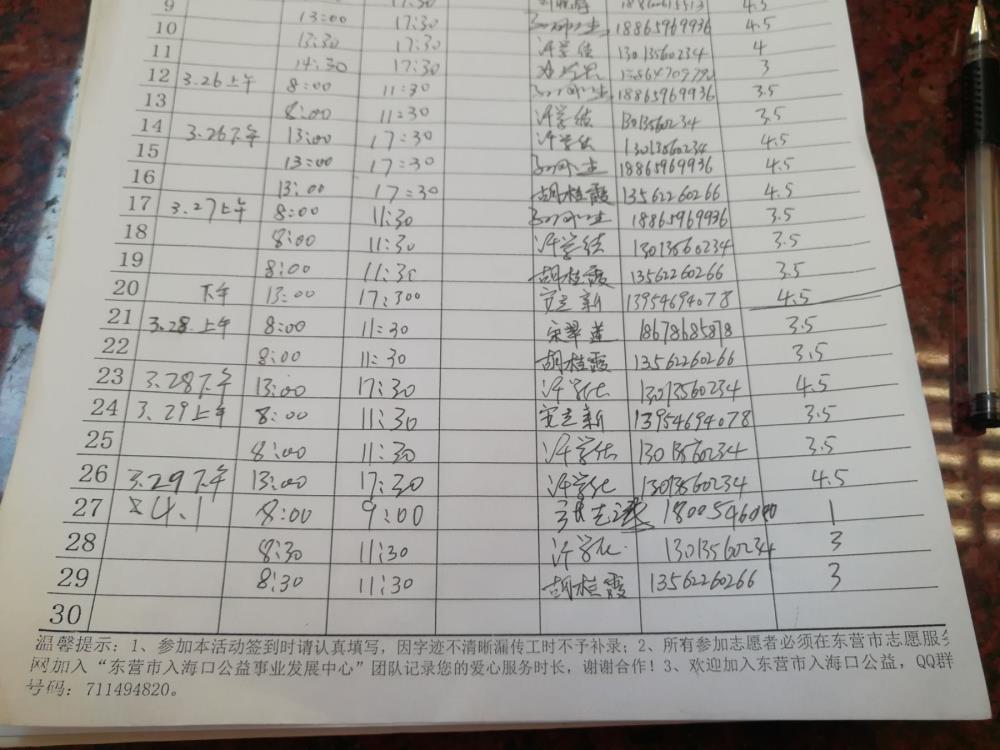 9 17:30 4.5
10 13:00 17:30 18865969936 4.5
11 13:30 17:30 许学 13013560234 4
12 14:30 17:30 3
3.26上午 8:00 11:30 18865969936 3.5
13 8:00 11:30 许学 13013560234 3.5
14 3.26下午 13:00 17:30 许学 13013560234 4.5
15 13:00 17:30 18865969936 4.5
16 13:00 17:30 胡桂霞 13562260266 4.5
17 3.27上午 8:00 11:30 18865969936 3.5
18 8:00 11:30 许学 13013560234 3.5
19 8:00 11:30 胡桂霞 13562260266 3.5
20 下午 13:00 17:300 安立新 13954694078 4.5
21 3.28.上午 8:00 11:30 宋翠莲 18678685878 3.5
22 8:00 11:30 胡桂霞 13562260266 3.5
23 3.28下午 13:00 17:30 许学 13013560234 4.5
24 3.29上午 8:00 11:30 安立新 13954694078 3.5
25 8:00 11:30 许学 13013560234 3.5
26 3.29下午 13:00 17:30 许学 13013560234 4.5
27 4.1 8:00 9:00 1
28 8:30 11:30 许学 13013560234 3
29 8:30 11:30 胡桂霞 13562260266 3
30
温馨提示：1、参加本活动签到时请认真填写，因字迹不清晰漏传工时不予补录；2、所有参加志愿者必须在东营市志愿服务
网加入“东营市入海口公益事业发展中心”团队记录您的爱心服务时长，谢谢合作！3、欢迎加入东营市入海口公益，QQ群
号码：711494820。